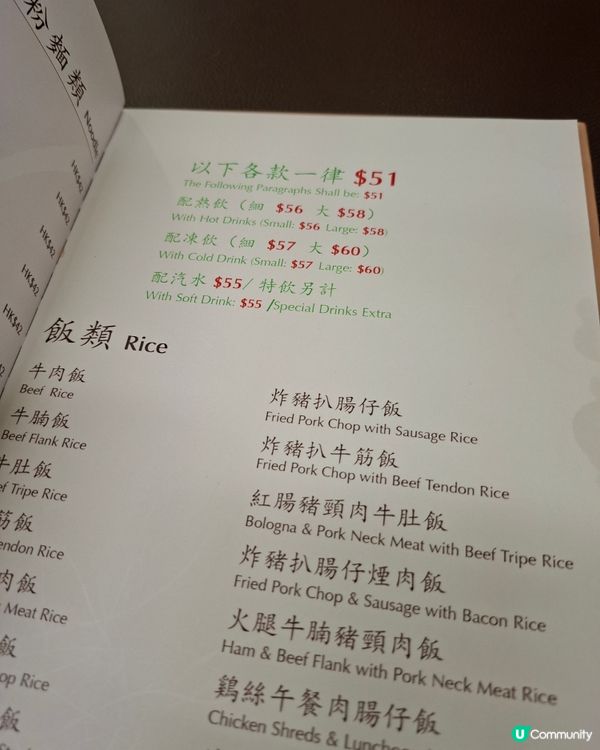 粉麵類 Noodle
HK$42
HK$42
HK$42
HK$42
HK$42
以下各款一律 $51
The Following Paragraphs Shall be: $51
配熱飲（細 $56 大 $58）
With Hot Drinks (Small: $56 Large: $58)
配凍飲（細 $57 大 $60）
With Cold Drink (Small: $57 Large: $60)
配汽水 $55/ 特飲另計
With Soft Drink: $55 /Special Drinks Extra
飯類 Rice
牛肉飯
Beef Rice
牛腩飯
Beef Flank Rice
牛肚飯
ef Tripe Rice
筋飯
endon Rice
肉飯
Meat Rice
飯
op Rice
飯
炸豬扒腸仔飯
Fried Pork Chop with Sausage Rice
炸豬扒牛筋飯
Fried Pork Chop with Beef Tendon Rice
紅腸豬頸肉牛肚飯
Bologna & Pork Neck Meat with Beef Tripe Rice
炸豬扒腸仔煙肉飯
Fried Pork Chop & Sausage with Bacon Rice
火腿牛腩豬頸肉飯
Ham & Beef Flank with Pork Neck Meat Rice
鷄絲午餐肉腸仔飯
Chicken Shreds & Lunche
U Community